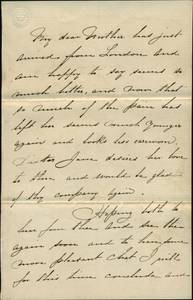 My dear Mother has just
arrived from London and
am happy to say seems so
much better, and now that
so much of the pain has
left her seems much younger
again and looks her
Jane desires her love
to thee and would be glad
of thy company again.
Hoping both to
hear from thee and see thee
again soon and to have some
more pleasant chat I will
for this time conclude and